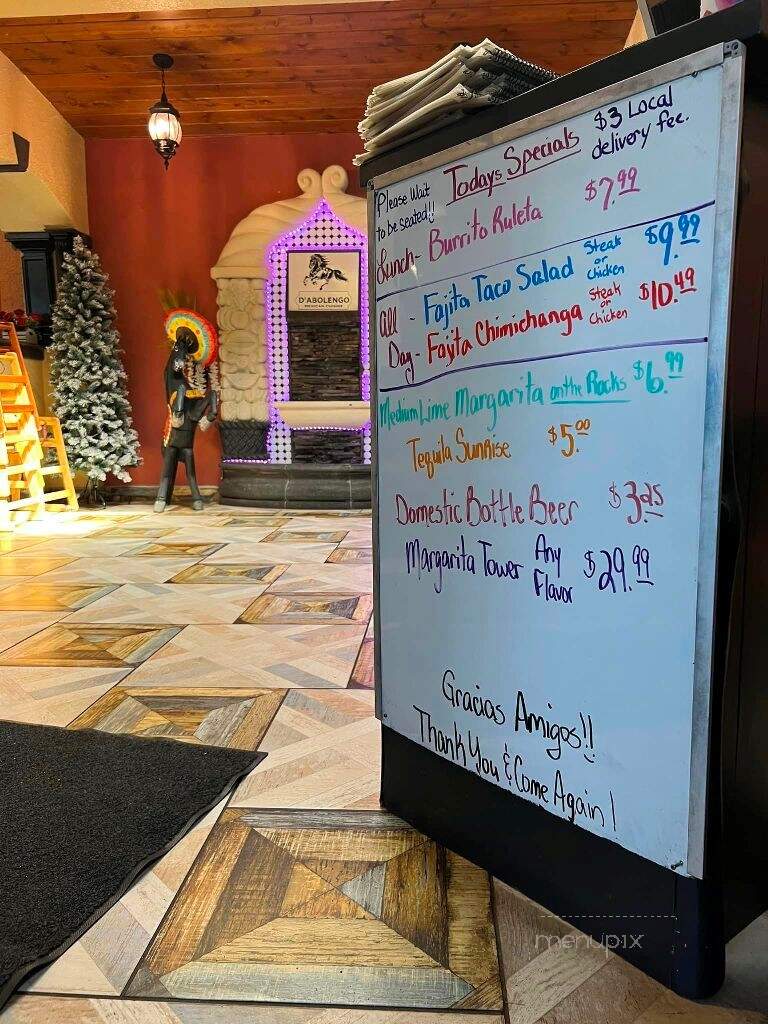 Todays Specials
$3 Local
delivery fee.
Please Wait
to be seated!!
Lunch- Burrito Ruleta $7.99
All - Fajita Taco Salad Steak or Chicken $9.99
Day- Fajita Chimichanga Steak or Chicken $10.49
Medium Lime Margarita on the Rocks $6.99
Tequila Sunrise $5.00
Domestic Bottle Beer $3.25
Margarita Tower Any Flavor $29.99
Gracias Amigos!!
Thank You & Come Again!
D'ABOLENGO
MEXICAN CUISINE
menupix